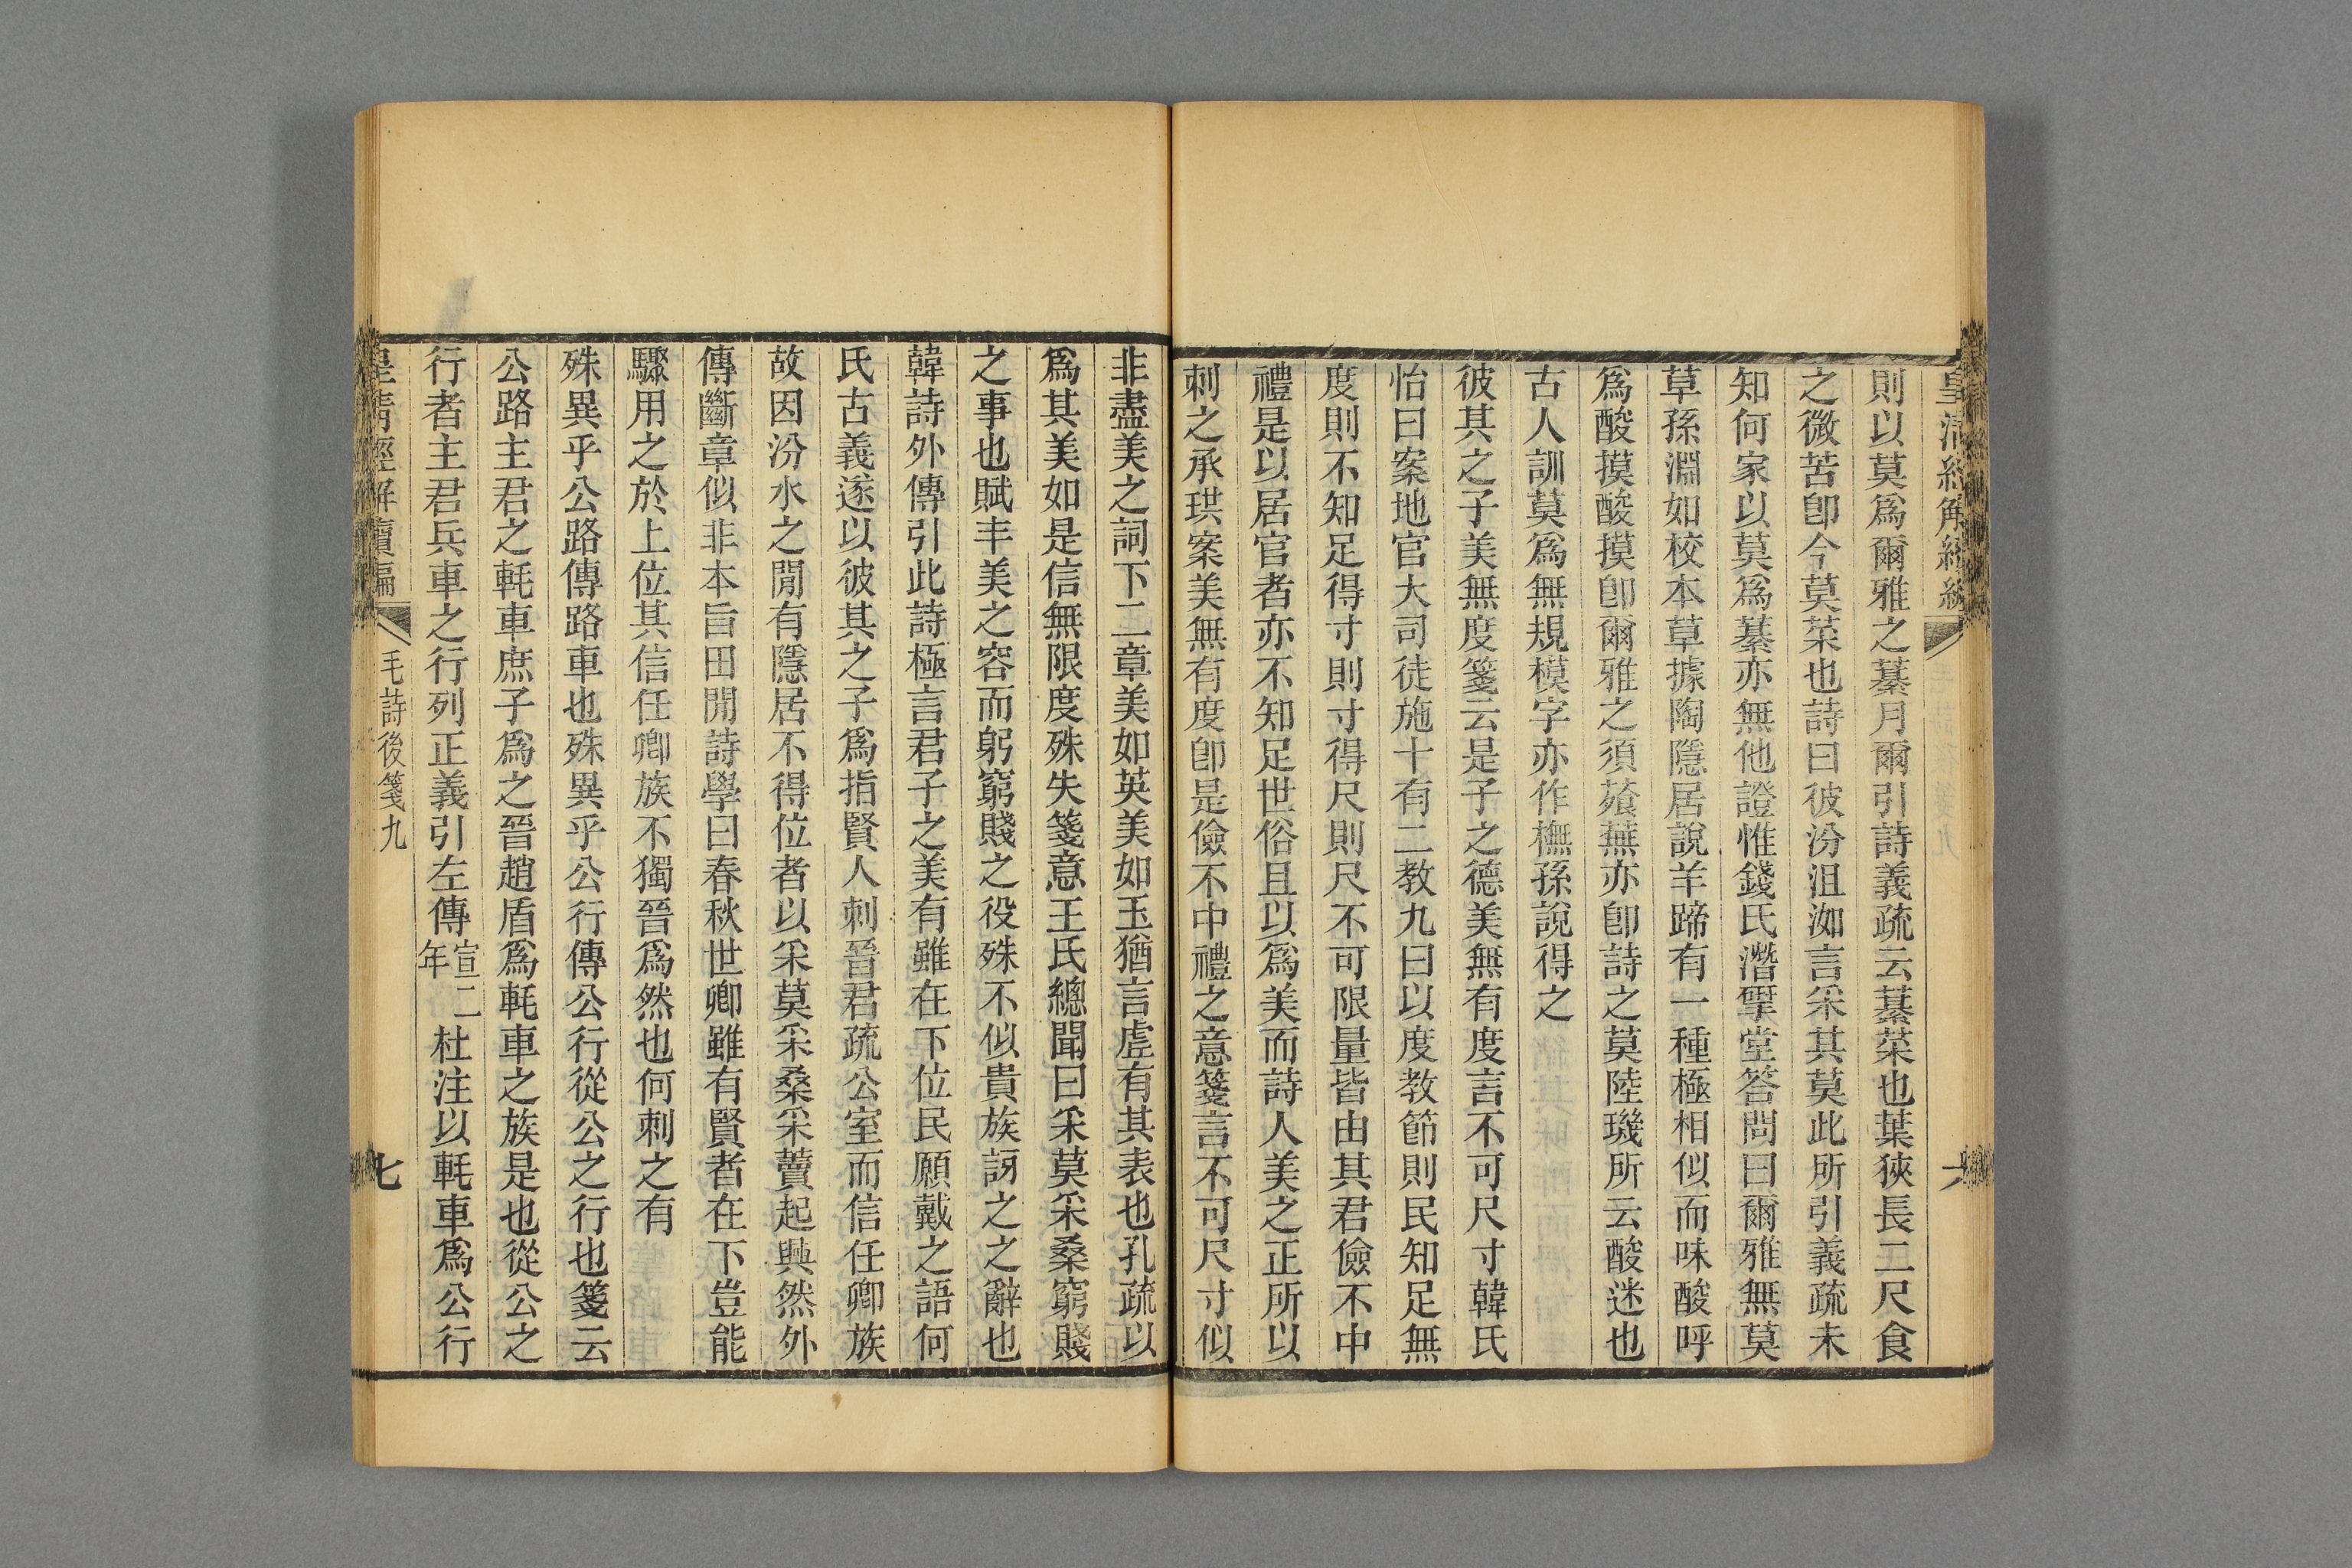 則以莫爲爾雅之綦月爾引詩義疏云綦菜也葉狹長二尺食
之微苦卽今莫菜也詩曰彼汾沮洳言采其莫此所引義疏未
知何家以莫爲綦亦無他證惟錢氏潛揅堂答問曰爾雅無莫
草孫淵如校本草據陶隱居說羊蹄有一種極相似而味酸呼
爲酸摸酸摸卽爾雅之須蕵蕪亦卽詩之莫陸璣所云酸迷也
古人訓莫爲無規模字亦作橅孫說得之
彼其之子美無度箋云是子之德美無有度言不可尺寸韓氏
怡曰案地官大司徒施十有二教九曰以度教節則民知足無
度則不知足得寸則寸得尺則尺不可限量皆由其君儉不中
禮是以居官者亦不知足世俗且以爲美而詩人美之正所以
刺之承珙案美無有度卽是儉不中禮之意箋言不可尺寸似
非盡美之詞下二章美如英美如玉猶言虛有其表也孔疏以
爲其美如是信無限度殊失箋意王氏總聞曰采莫采桑窮賤
之事也賦丰美之容而躬窮賤之役殊不似貴族訝之之辭也
韓詩外傳引此詩極言君子之美有雖在下位民願戴之語何
氏古義遂以彼其之子爲指賢人刺晉君疏公室而信任卿族
故因汾水之閒有隱居不得位者以采莫采桑采藚起興然外
傳斷章似非本旨田閒詩學曰春秋世卿雖有賢者在下豈能
驟用之於上位其信任卿族不獨晉爲然也何刺之有
殊異乎公路傳路車也殊異乎公行傳公行從公之行也箋云
公路主君之軞車庶子爲之晉趙盾爲軞車之族是也從公之
行者主君兵車之行列正義引左傳宣二年杜注以軞車爲公行
皇清經解續編 毛詩後箋九 七